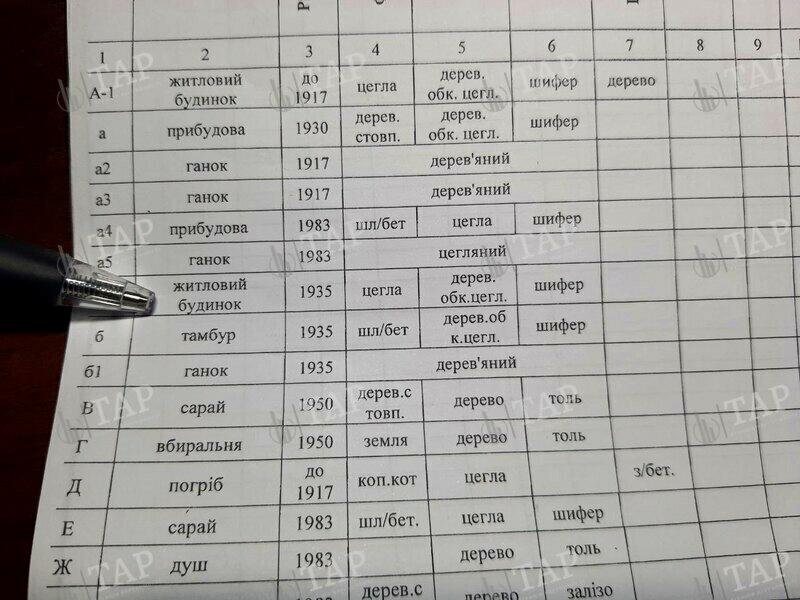 1 2 3 4 5 6 7 8 9
А-1 житловий будинок до 1917 цегла дерев. обк. цегл. шифер дерево
а прибудова 1930 дерев. стовп. дерев. обк. цегл. шифер
а2 ганок 1917 дерев'яний
а3 ганок 1917 дерев'яний
а4 прибудова 1983 шл/бет цегла шифер
а5 ганок 1983 цегляний
житловий будинок 1935 цегла дерев. обк.цегл. шифер
б тамбур 1935 шл/бет дерев.об к.цегл. шифер
б1 ганок 1935 дерев'яний
В сарай 1950 дерев.с товп. дерево толь
Г вбиральня 1950 земля дерево толь
Д погріб до 1917 коп.кот цегла з/бет.
Е сарай 1983 шл/бет. цегла шифер
Ж душ 1983 дерево толь
дерев.с дерево залізо
TAP